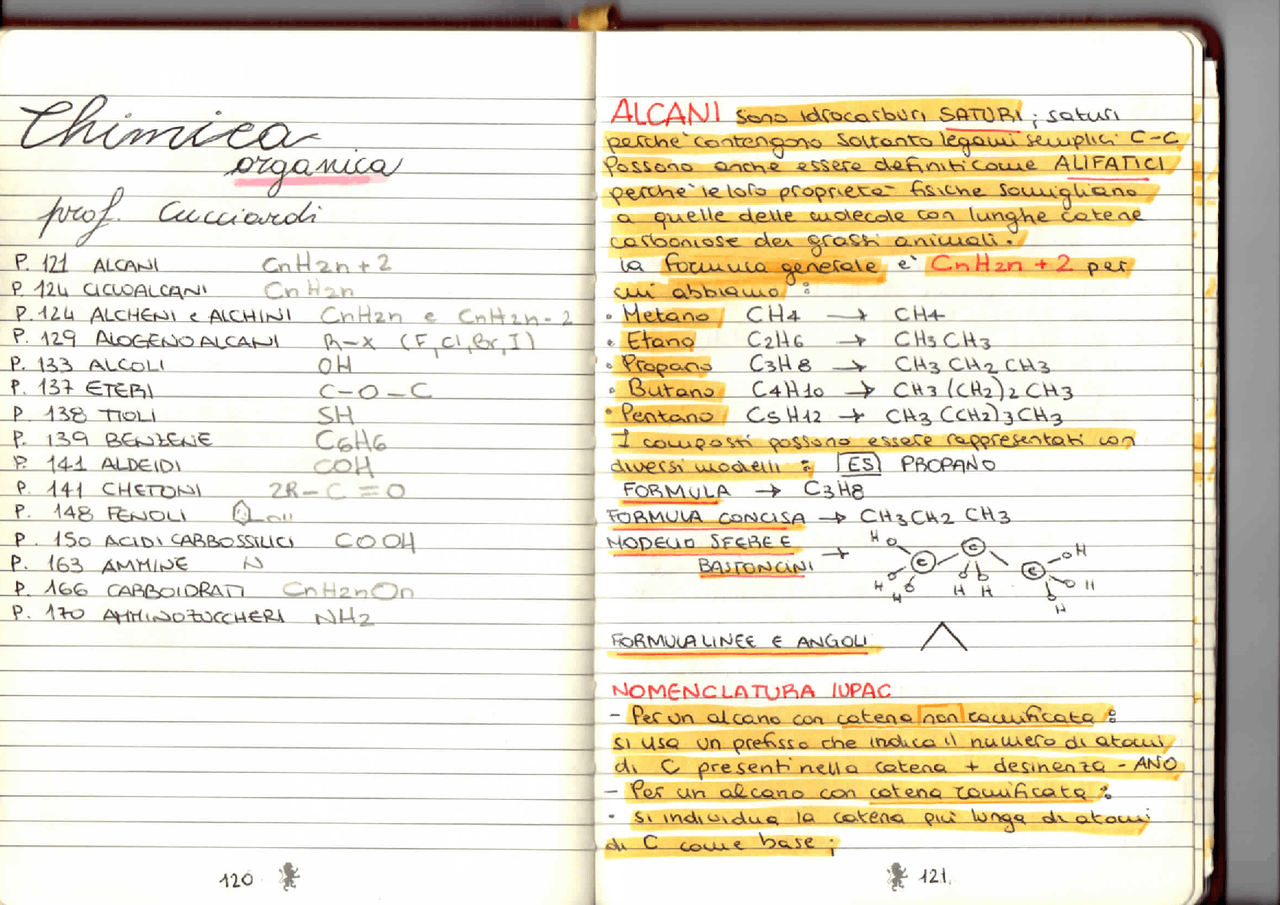 Chimica
organica
prof. Cucciardi
P. 121 ALCANI CnH2n+2
P. 124 CICLOALCANI CnH2n
P. 124 ALCHENI e ALCHINI CnH2n e CnH2n-2
P. 129 ALOGENOALCANI R-X (F, Cl, Br, I)
P. 133 ALCOLI OH
P. 137 ETERI C-O-C
P. 138 TIOLI SH
P. 139 BENZENE C6H6
P. 141 ALDEIDI COH
P. 141 CHETONI 2R-C=O
P. 148 FENOLI
P. 150 ACIDI CARBOSSILICI COOH
P. 163 AMMINE N
P. 166 CARBOIDRATI CnH2nOn
P. 170 AMMINOZUCCHERI NH2
120
ALCANI sono idrocarburi SATURI; saturi
perchè contengono soltanto legami semplici C-C
Possono anche essere definiti come ALIFATICI
perchè le loro proprietà fisiche somigliano
a quelle delle molecole con lunghe catene
carboniose dei grassi animali.
la formula generale è CnH2n+2 per
cui abbiamo:
• Metano CH4 → CH4
• Etano C2H6 → CH3CH3
• Propano C3H8 → CH3 CH2 CH3
• Butano C4H10 → CH3(CH2)2CH3
• Pentano C5H12 → CH3(CH2)3CH3
I composti possono essere rappresentati con
diversi modelli: ES PROPANO
FORMULA → C3H8
FORMULA CONCISA → CH3CH2 CH3
MODELLO SFERE E
BASTONCINI →
H C C C H
H H H H H H
FORMULA LINEE E ANGOLI
NOMENCLATURA IUPAC
- Per un alcano con catena non ramificata:
si usa un prefisso che indica il numero di atomi
di C presenti nella catena + desinenza -ANO
- Per un alcano con catena ramificata:
• si individua la catena più lunga di atomi
di C come base;
121